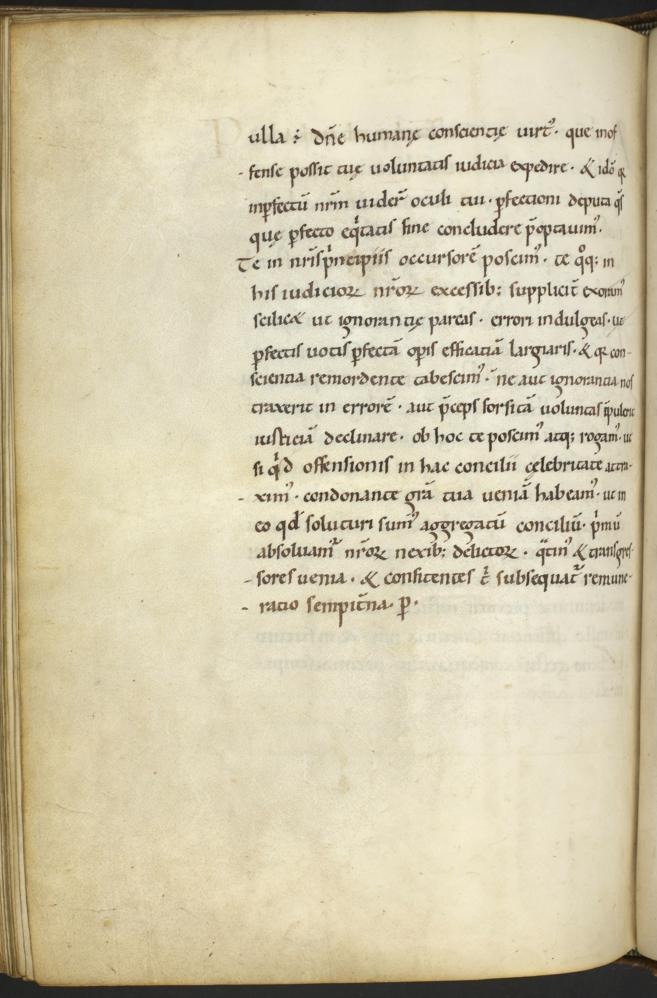 ulla ē dn̄e humanę conscientię uirt᷒· que inof
-fense possit tuę uoluntatis iudicia expedire· & idō q̄
inp̱fectū nr̄m uider̄ oculi tui· p̱fectioni deputa q̄s
que p̱fecto eq̇tatis fine concludere p̄optauim᷒·
Te in nr̄is ṗncipiis occursorē poscim᷒· te q̊q; in
his iudicioꝝ nr̄oꝝ excessib; suppliciť exoram᷒
scilic& ut ignorantię parcas· errori indulgeas· ut
p̱fectis uotis p̱fectā oꝑis efficatiā largiaris· & qꝛ con-
scientia remordente tabescim᷒· ne aut ignorantia nos
traxerit in errorē· aut p̄ceps forsitā uoluntas īpulerit
iusticiā declinare· ob hoc te poscim᷒ atq; rogam᷒· ut
si q̇d offensionis in hac concilii celebritate attra-
-xim᷒· condonante gr̄a tua ueniā habeam᷒· ut in
eo qd̄ soluturi sum᷒ aggregatū conciliū· ṗmū
absoluam᷒ nr̄oꝝ nexib; delictoꝝ· q̄tin᷒ & transgres-
-sores uenia· & confitentes t̄ subsequať remune-
-ratio sempiťna· ꝑ·